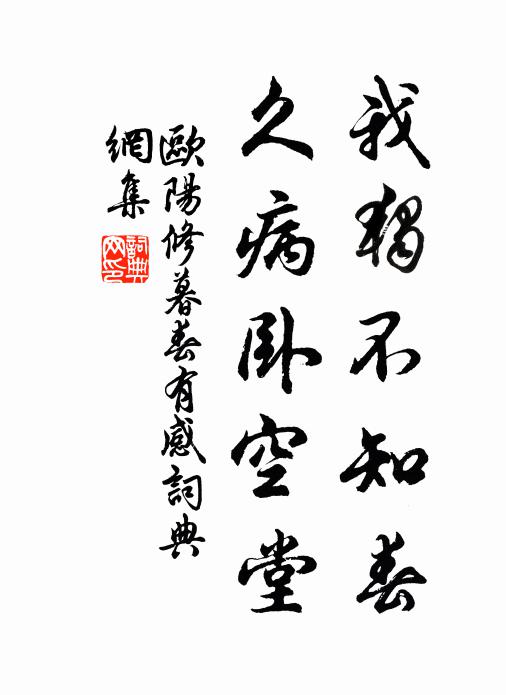 我獨不知春
久病卧空堂
歐陽修暮春有感詞典
網集
詞典
网印